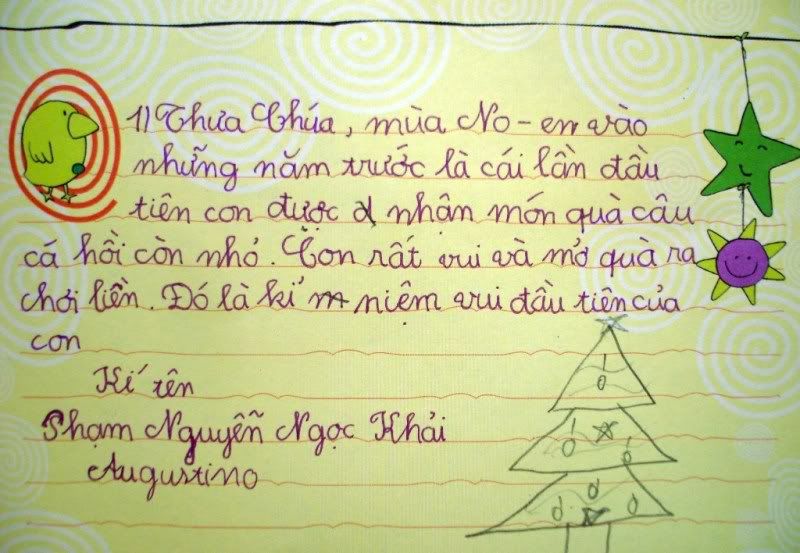 1) Thưa Chúa, mùa No-en vào
những năm trước là cái lần đầu
tiên con được nhận món quà câu
cá hồi còn nhỏ. Con rất vui và mở quà ra
chơi liền. Đó là kỉ niệm vui đầu tiên của
con
Kí tên
Phạm Nguyễn Ngọc Khải
Augustino